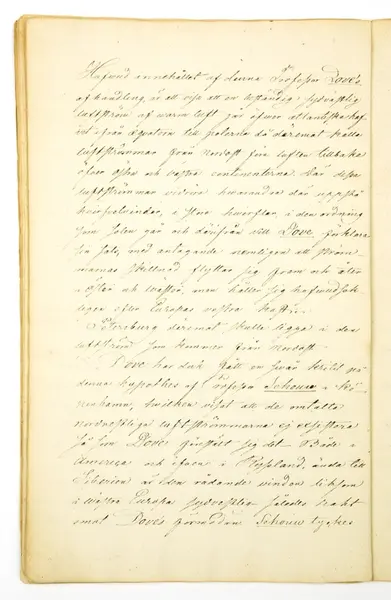 Hufvud innehållet af denna Professor Dove's
afhandling, är att visa att en beständig sydvestlig
luftström af varm luft går öfver atlantiska haf-
vet ifrån æqvatorn till polerna då deremot kalla
luftströmmar från nordost föra luften tillbaka
öfver östra och vestra continenterna. Der dessa
luftströmmar vidröra hvarandra der uppstå
hvirfvelvindar, vinden i den ordning
som solen går och derifrån vill Dove förklara
sin sats, med antagande nemligen att ström-
marnas skillnad flyttar sig fram och åter
i Öster och Vester, men håller sig hufvudsak-
ligen öfver Europas vestra
Petersburg deremot skulle ligga i den
luftström som kommer från nordost.
Dove har dock fått en svår kritik på
denna hypothes af Professor Schouw i Kö-
penhamn, hvilken visat att de omtalte
nordostliga luftströmmarna ej existera
så som Dove föreställt sig det. Både i
America och äfven i Ryssland, ända till
Siberien är den rådande vinden liksom
i vestra Europa sydvestlig således tvärt
emot Doves förmodan Schouw tyckes